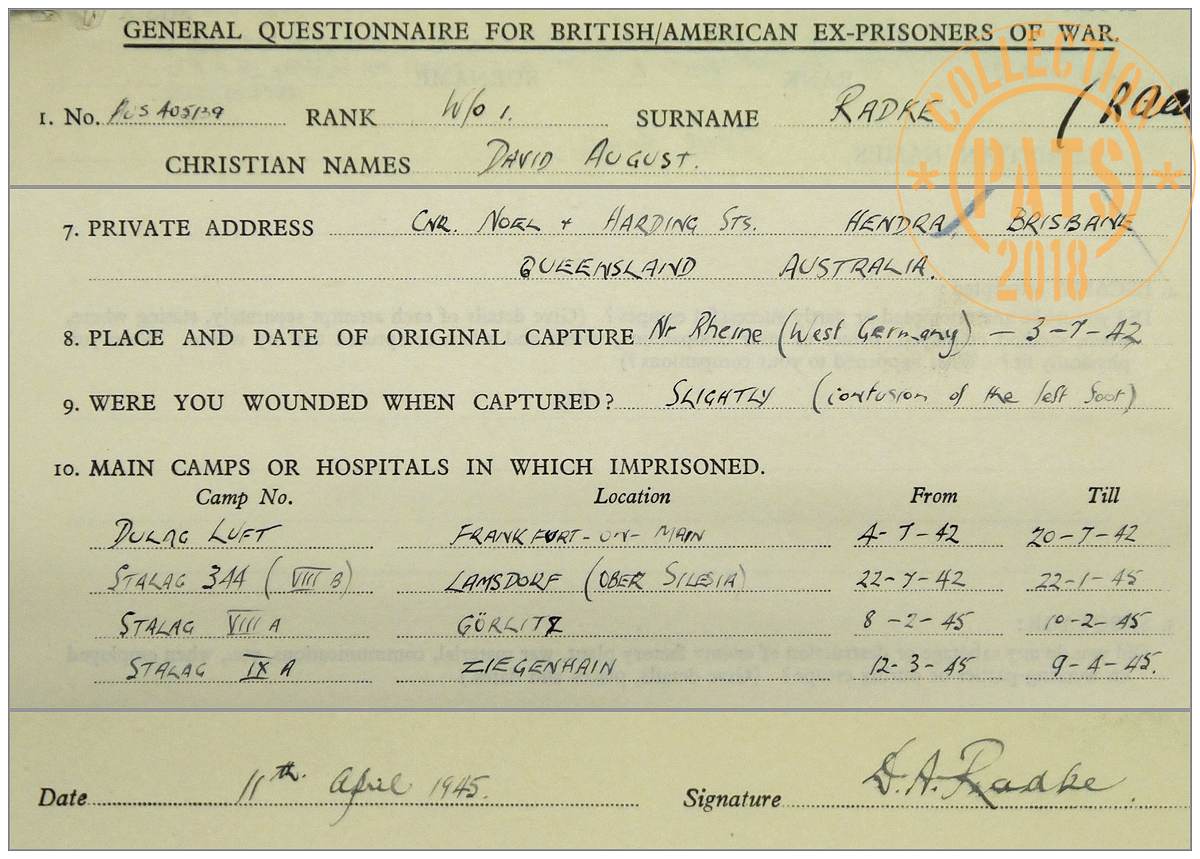 GENERAL QUESTIONNAIRE FOR BRITISH/AMERICAN EX-PRISONERS OF WAR.
1. No. AUS 405139 RANK W/O 1. SURNAME RADKE
CHRISTIAN NAMES DAVID AUGUST.
COLLECTION
PATS
2018
7. PRIVATE ADDRESS CNR. NOEL + HARDING STS. HENDRA, BRISBANE
QUEENSLAND AUSTRALIA.
8. PLACE AND DATE OF ORIGINAL CAPTURE Nr Rheine (West Germany) – 3-7-42
9. WERE YOU WOUNDED WHEN CAPTURED? SLIGHTLY (contusion of the left foot)
10. MAIN CAMPS OR HOSPITALS IN WHICH IMPRISONED.
Camp No. Location From Till
DULAG LUFT FRANKFURT-ON-MAIN 4-7-42 20-7-42
STALAG 344 (VIII B) LAMSDORF (OBER SILESIA) 22-7-42 22-1-45
STALAG VIII A GÖRLITZ 8-2-45 10-2-45
STALAG IX A ZIEGENHAIN 12-3-45 9-4-45.
Date 11th. April 1945. Signature D.A. Radke